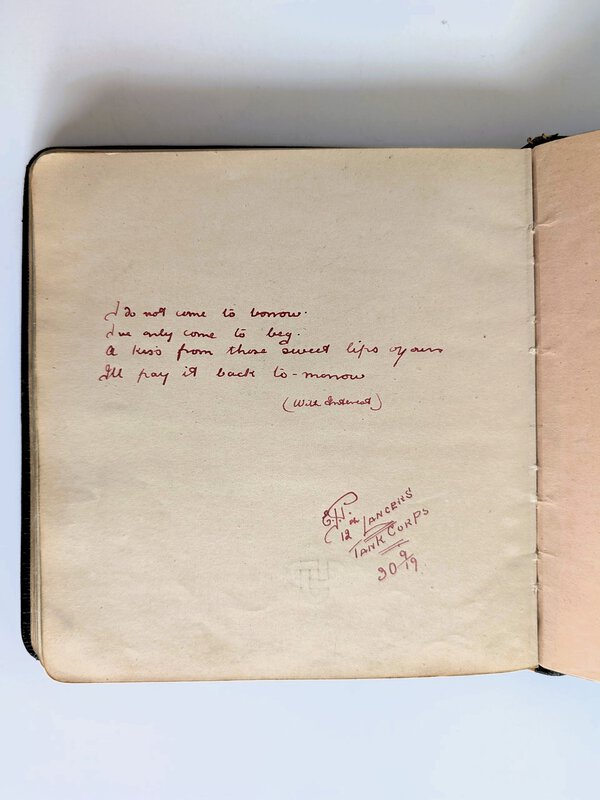 I do not come to borrow.
I've only come to beg.
A kiss from those sweet lips of yours
I'll pay it back to-morrow
(With Interest)
12th LANCERS
TANK CORPS
30 9/19